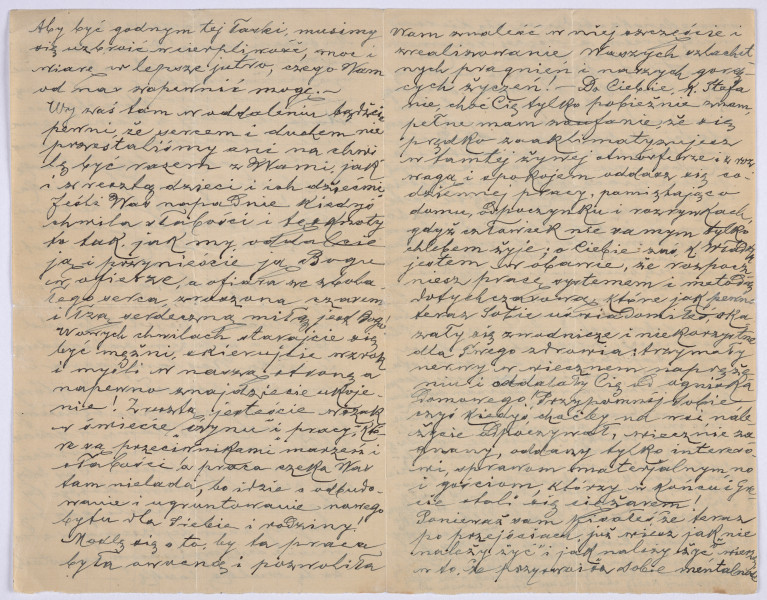 Aby być godnym tej Łaski, musimy
się uzbroić w cierpliwość, moc i
wiarę w lepsze jutro, czego Wam
od nas zapewnić mogę.~
Wy zaś tam w oddaleniu bądźcie
pewni, że sercem i duchem nie
przestaliśmy ani na chwi
lę być razem z Wami, jak
i zresztą dzieci i ich dziećmi
Jeśli Was napadnie kiedyś
chwila słabości i tęsknoty
to tak jak my, oddalcie
ją i przynieście ją Bogu
w ofierze, a ofiara ze zbola
łego serca, zroszona
i łzą serdeczną miłą jest Bogu
W owych chwilach starajcie się
być mężni, skierujcie wzrok
i myśli w naszą stronę a
napewno znajdziecie ukoje-
nie! Zresztą jesteście wszak
w świecie czynu i pracy, któ
re są przeciwnikami marzeń i
słabości, a praca czeka Was
tam nielada, bo idzie o odbudo-
wanie i ugruntowanie nowego
bytu dla Siebie i rodziny!
Modlę się o to, by ta praca
była owocną i pozwoliła
Wam znaleść w niej szczęście i
zrealizowanie Waszych szlachet
nych pragnień i naszych gorą-
cych życzeń! — Do Ciebie, k. Stefa
nie, choć Cię tylko pobieżnie znam,
pełne mam zaufanie, że się
prędko zaaklimatyzujesz
w tamtej żywej atmosferze i z roz
wagą i spokojem oddasz się co-
dziennej pracy, pamiętając o
domu, odpoczynku i rozrywkach,
gdyż człowiek nie samym tylko
chlebem żyje; o Ciebie zaś, k.
jestem w obawie, że rozpocz-
niesz pracę systemem i metodą
dotychczasową, które jak pewnie
teraz Sobie uświadomiłeś, oka
zały się zwodnicze i niekorzystne
dla Twego zdrowia; trzymały
nerwy w wiecznem napręże
niu i oddalały Cię od ogniska
Domowego. Przypomnij Sobie
czyś kiedyś, choćby na wsi nale
życie odpoczywał, wiecznie za
gnany, oddany tylko intereso-
wi, sprawom materjalnym no
i gościom, którzy w końcu i Gr
cie stali się ciężarem!
Ponieważ sam pisałeś, że teraz
po przejściach, już wiesz jak nie
należy żyć i jak należy żyć, wierzę
w to, że przyswoisz sobie mentalność